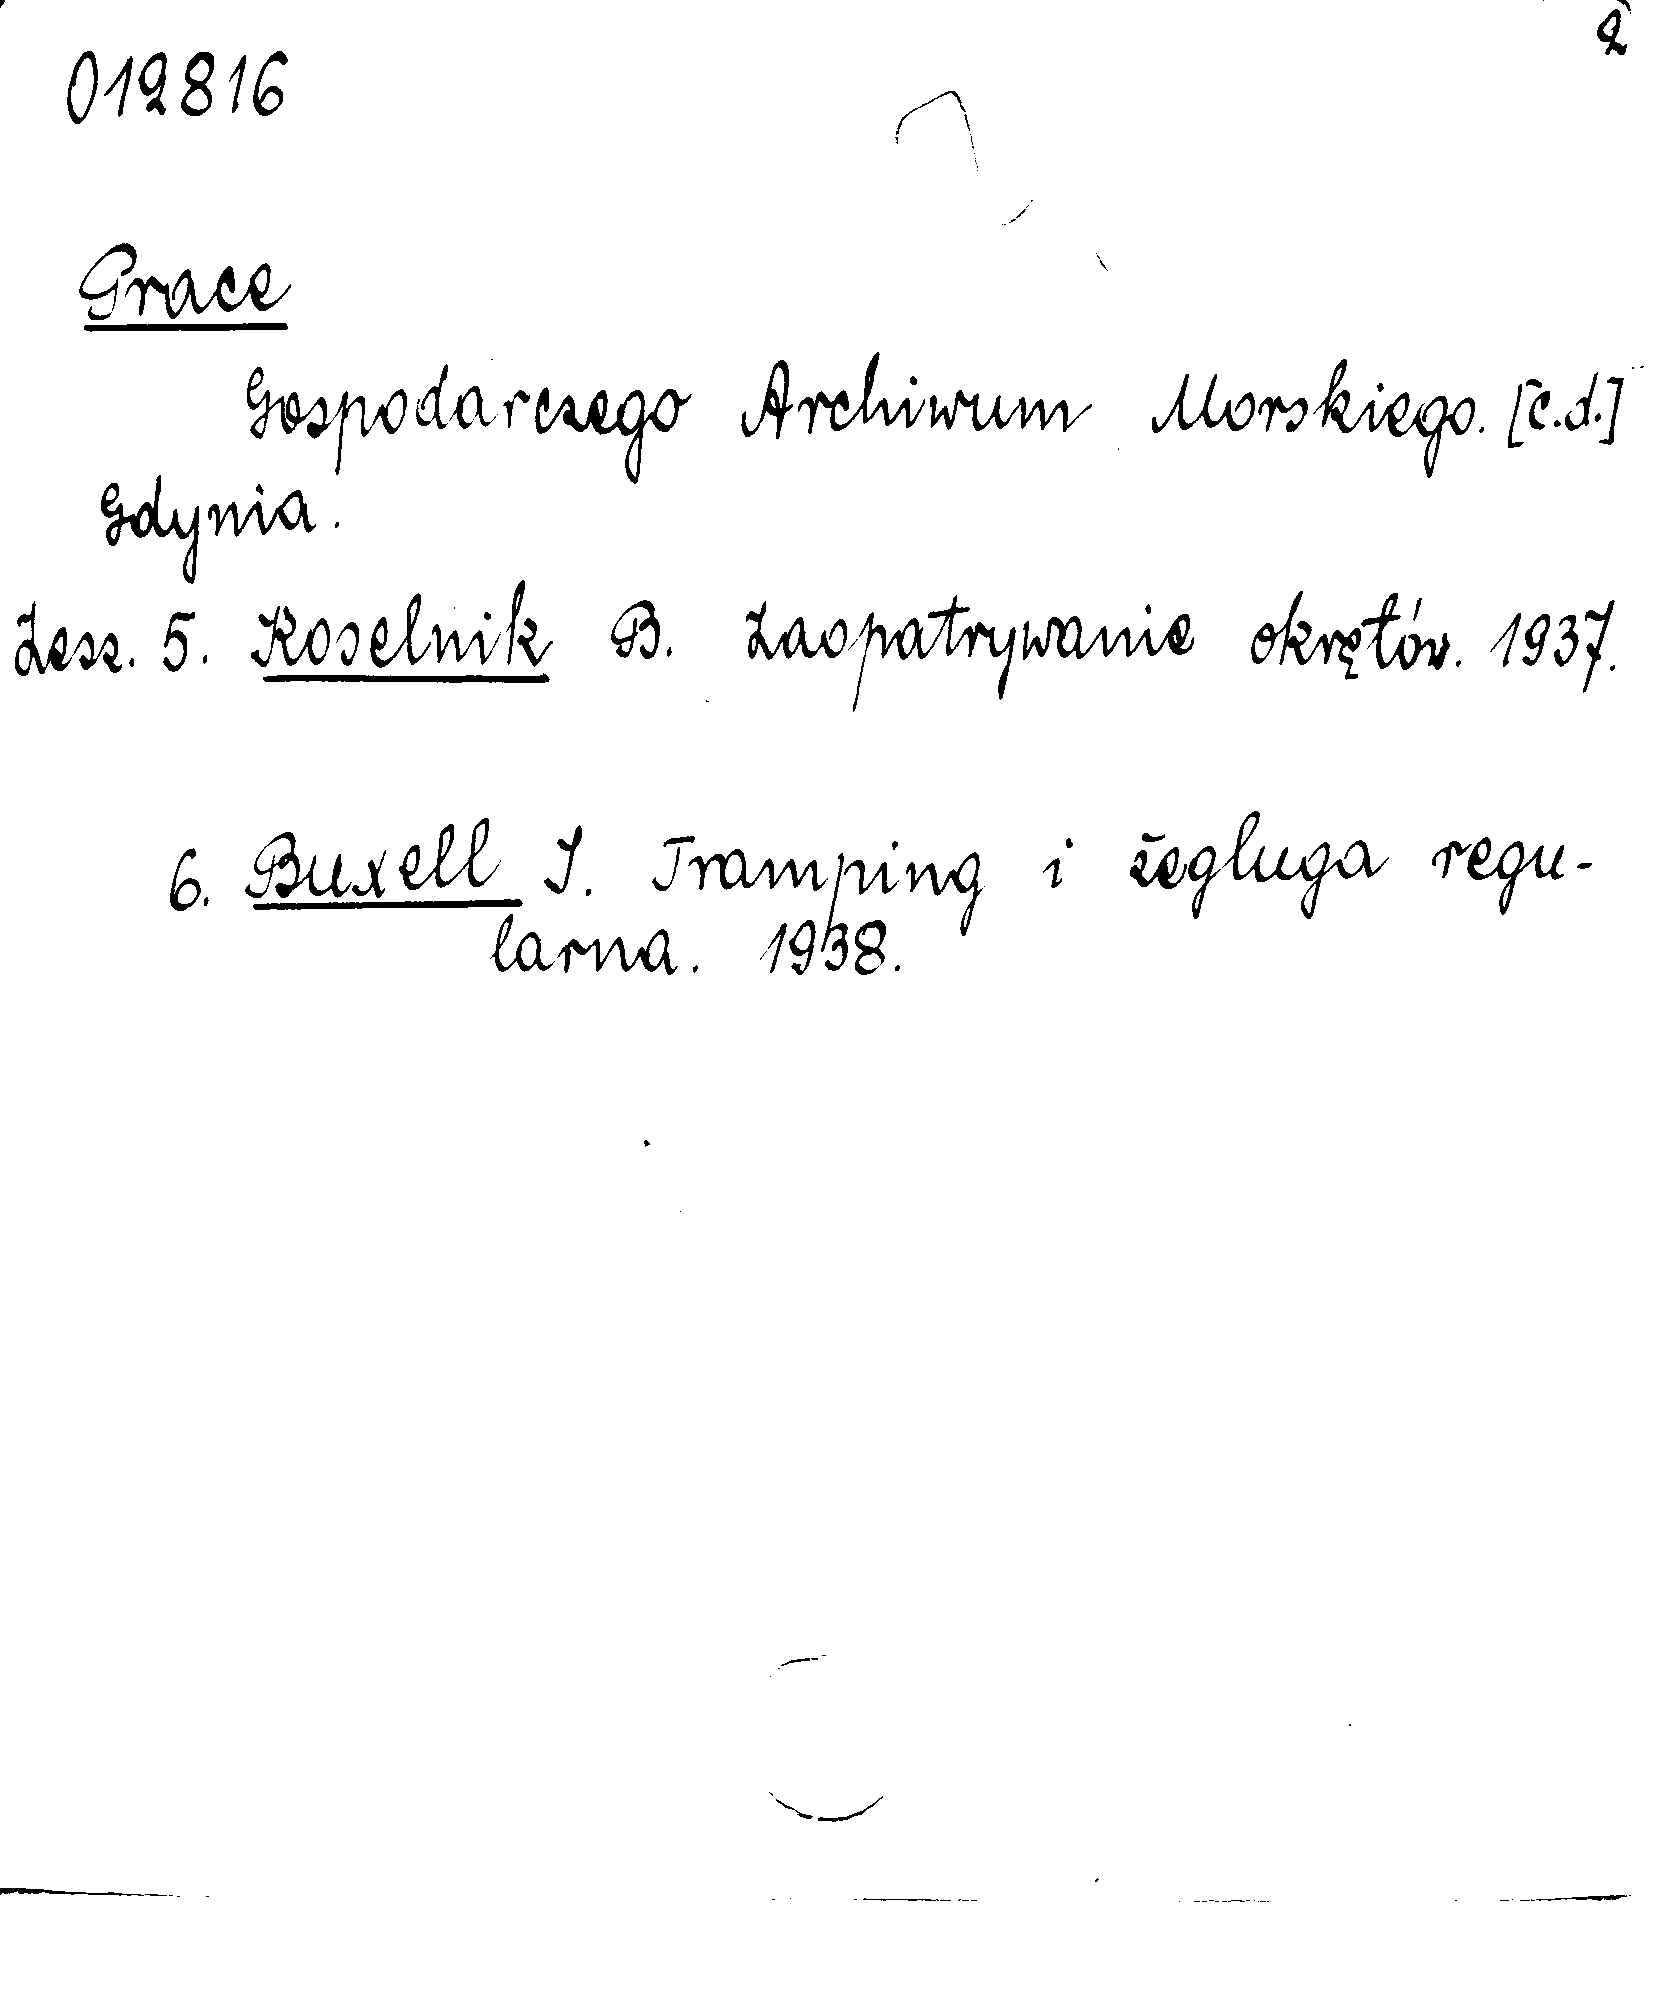 2
012816
Prace
Gospodarczego Archiwum Morskiego. [c.d.]
Gdynia.
Zesz. 5. Koselnik B. Zaopatrywanie okrętów. 1937.
6. Buxell J. Tramping i żegluga regu-
larna. 1938.